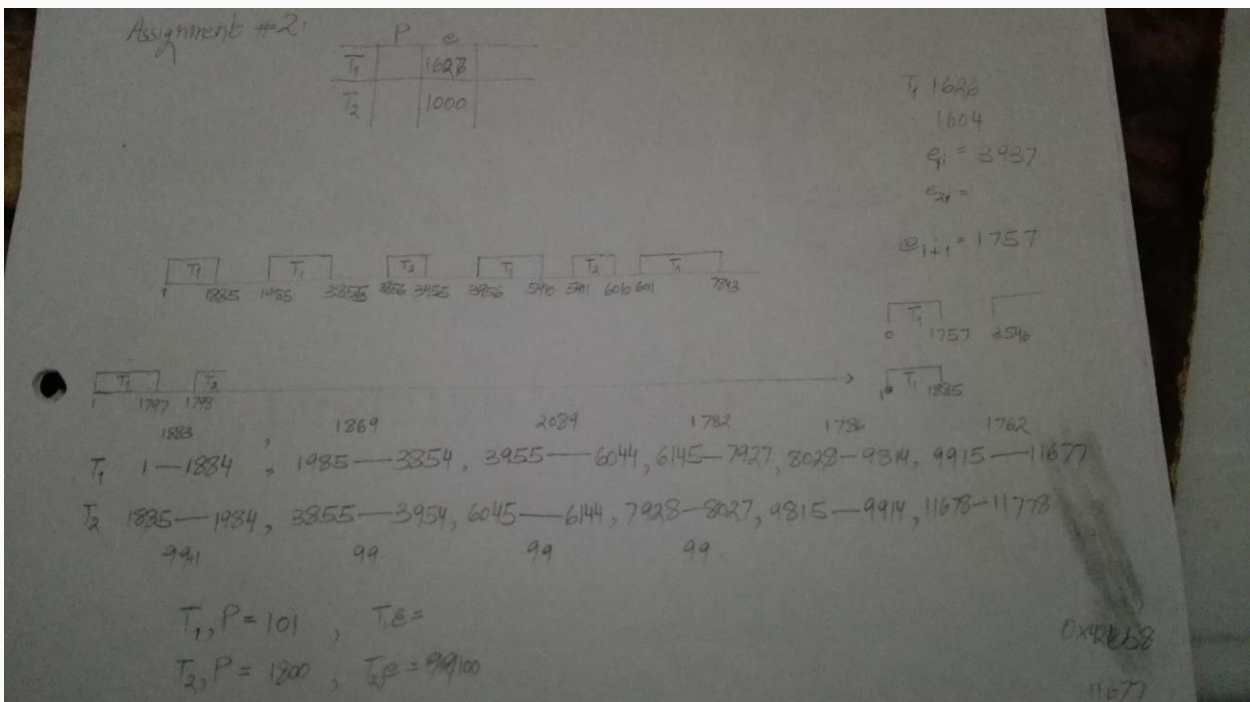 Assignment #2:
P e
T1 1627
T2 1000
T1 1626
1604
e1i = 3937
e2i =
e1i+1 = 1757
T1 T1 T2 T1 T2 T1
1 1885 1985 3855 3856 3955 3956 5910 5911 6010 6011 7843
T1
0 1757 3546
T1 T2
1 1797 1798
T1
1 1885
1883 , 1869 2089 1782 1786 1762
T1 1—1884 , 1985—3854, 3955—6044, 6145—7927, 8028—9814, 9915—11677
T2 1885—1984, 3855—3954, 6045—6144, 7928—8027, 9815—9914, 11678—11778
99+1 99 99 99
T1, P = 101 , T1e =
T2, P = 1800 , T2e = 99100
11677